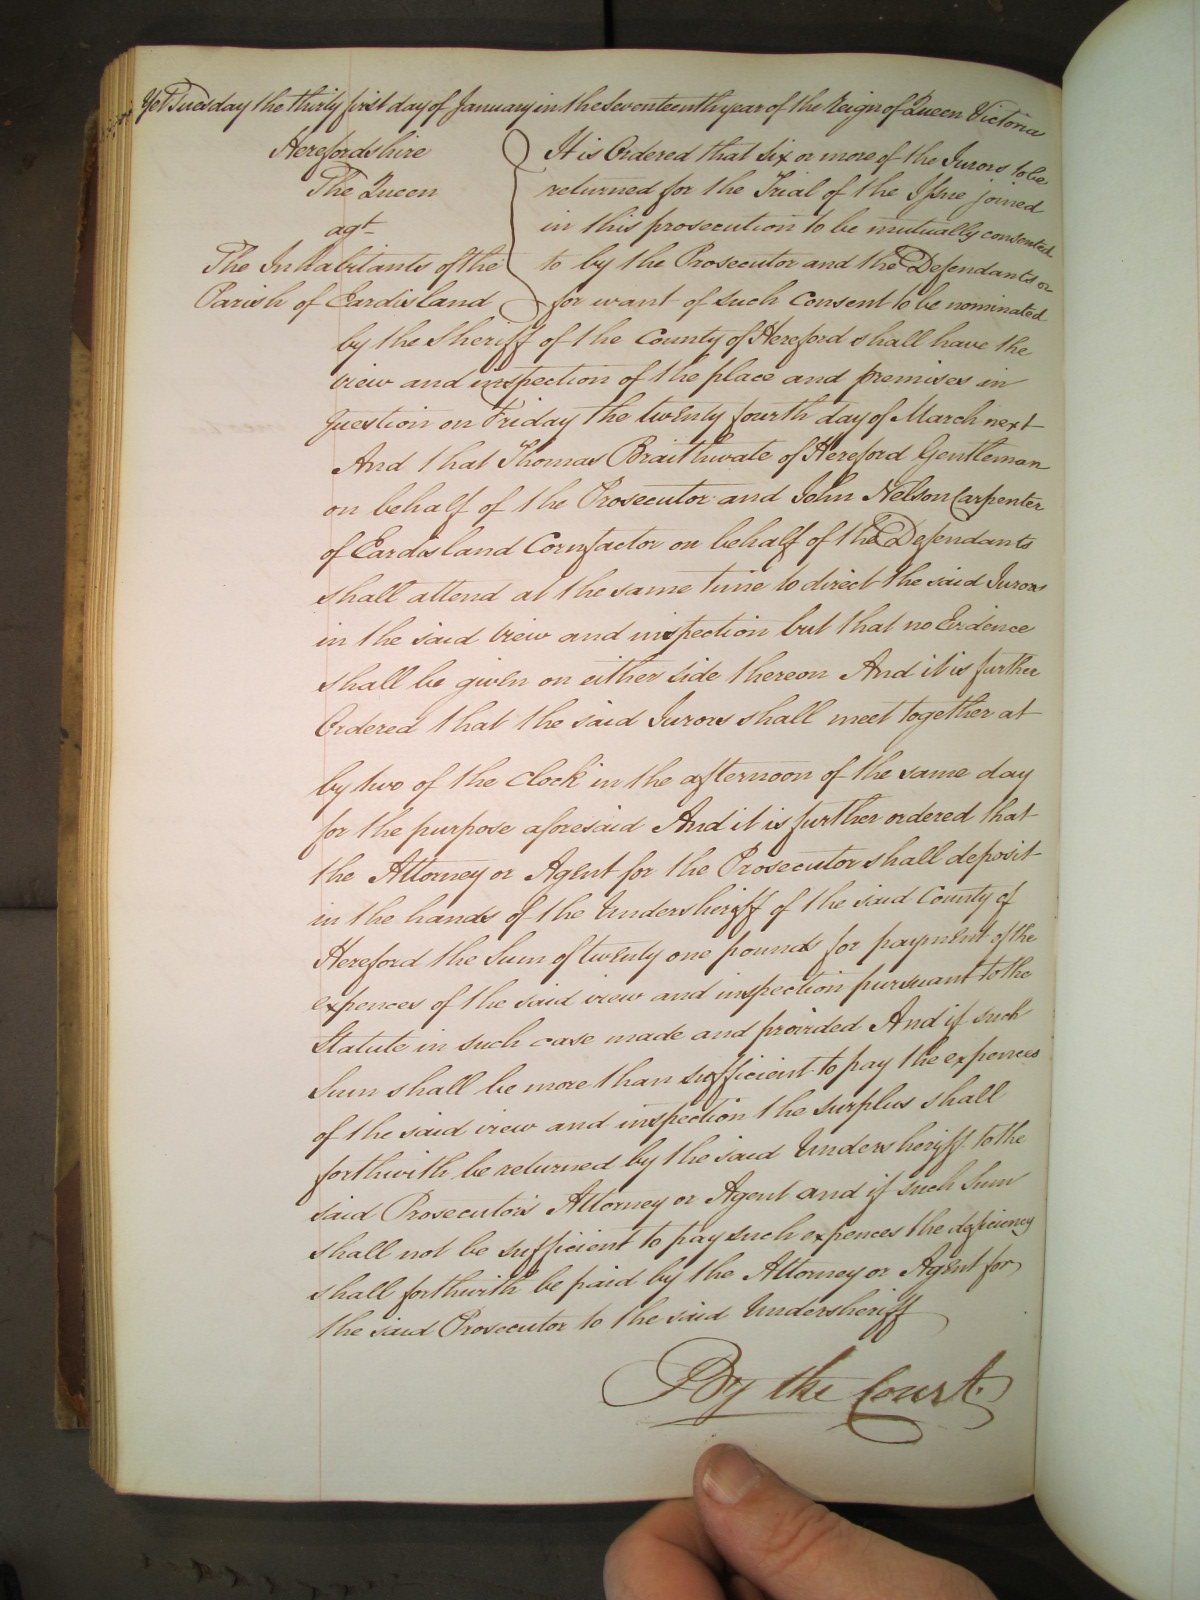 Yet Tuesday the thirty first day of January in the seventeenth year of the Reign of Queen Victoria
Herefordshire
The Queen
agt
The Inhabitants of the
Parish of Eardisland
It is Ordered that Six or more of the Jurors to be
returned for the Trial of the Issue joined
in this prosecution to be mutually consented
to by the Prosecutor and the Defendants or
for want of such consent to be nominated
by the Sheriff of the County of Hereford shall have the
view and inspection of the place and premises in
question on Friday the twenty fourth day of March next
And that Thomas Braithwate of Hereford Gentleman
on behalf of the Prosecutor and John Nelson Carpenter
of Eardisland Cornfactor on behalf of the Defendants
shall attend at the same time to direct the said Jurors
in the said view and inspection but that no Evidence
shall be given on either side thereon And it is further
Ordered that the said Jurors shall meet together at
by two of the clock in the afternoon of the same day
for the purpose aforesaid And it is further ordered that
the Attorney or Agent for the Prosecutor shall deposit
in the hands of the Undersheriff of the said County of
Hereford the Sum of twenty one pounds for payment of the
expences of the said view and inspection pursuant to the
Statute in such case made and provided And if such
Sum shall be more than sufficient to pay the expences
of the said view and inspection the surplus shall
forthwith be returned by the said Undersheriff to the
said Prosecutor's Attorney or Agent and if such Sum
shall not be sufficient to pay such expences the deficiency
shall forthwith be paid by the Attorney or Agent for
the said Prosecutor to the said Undersheriff
By the Court.